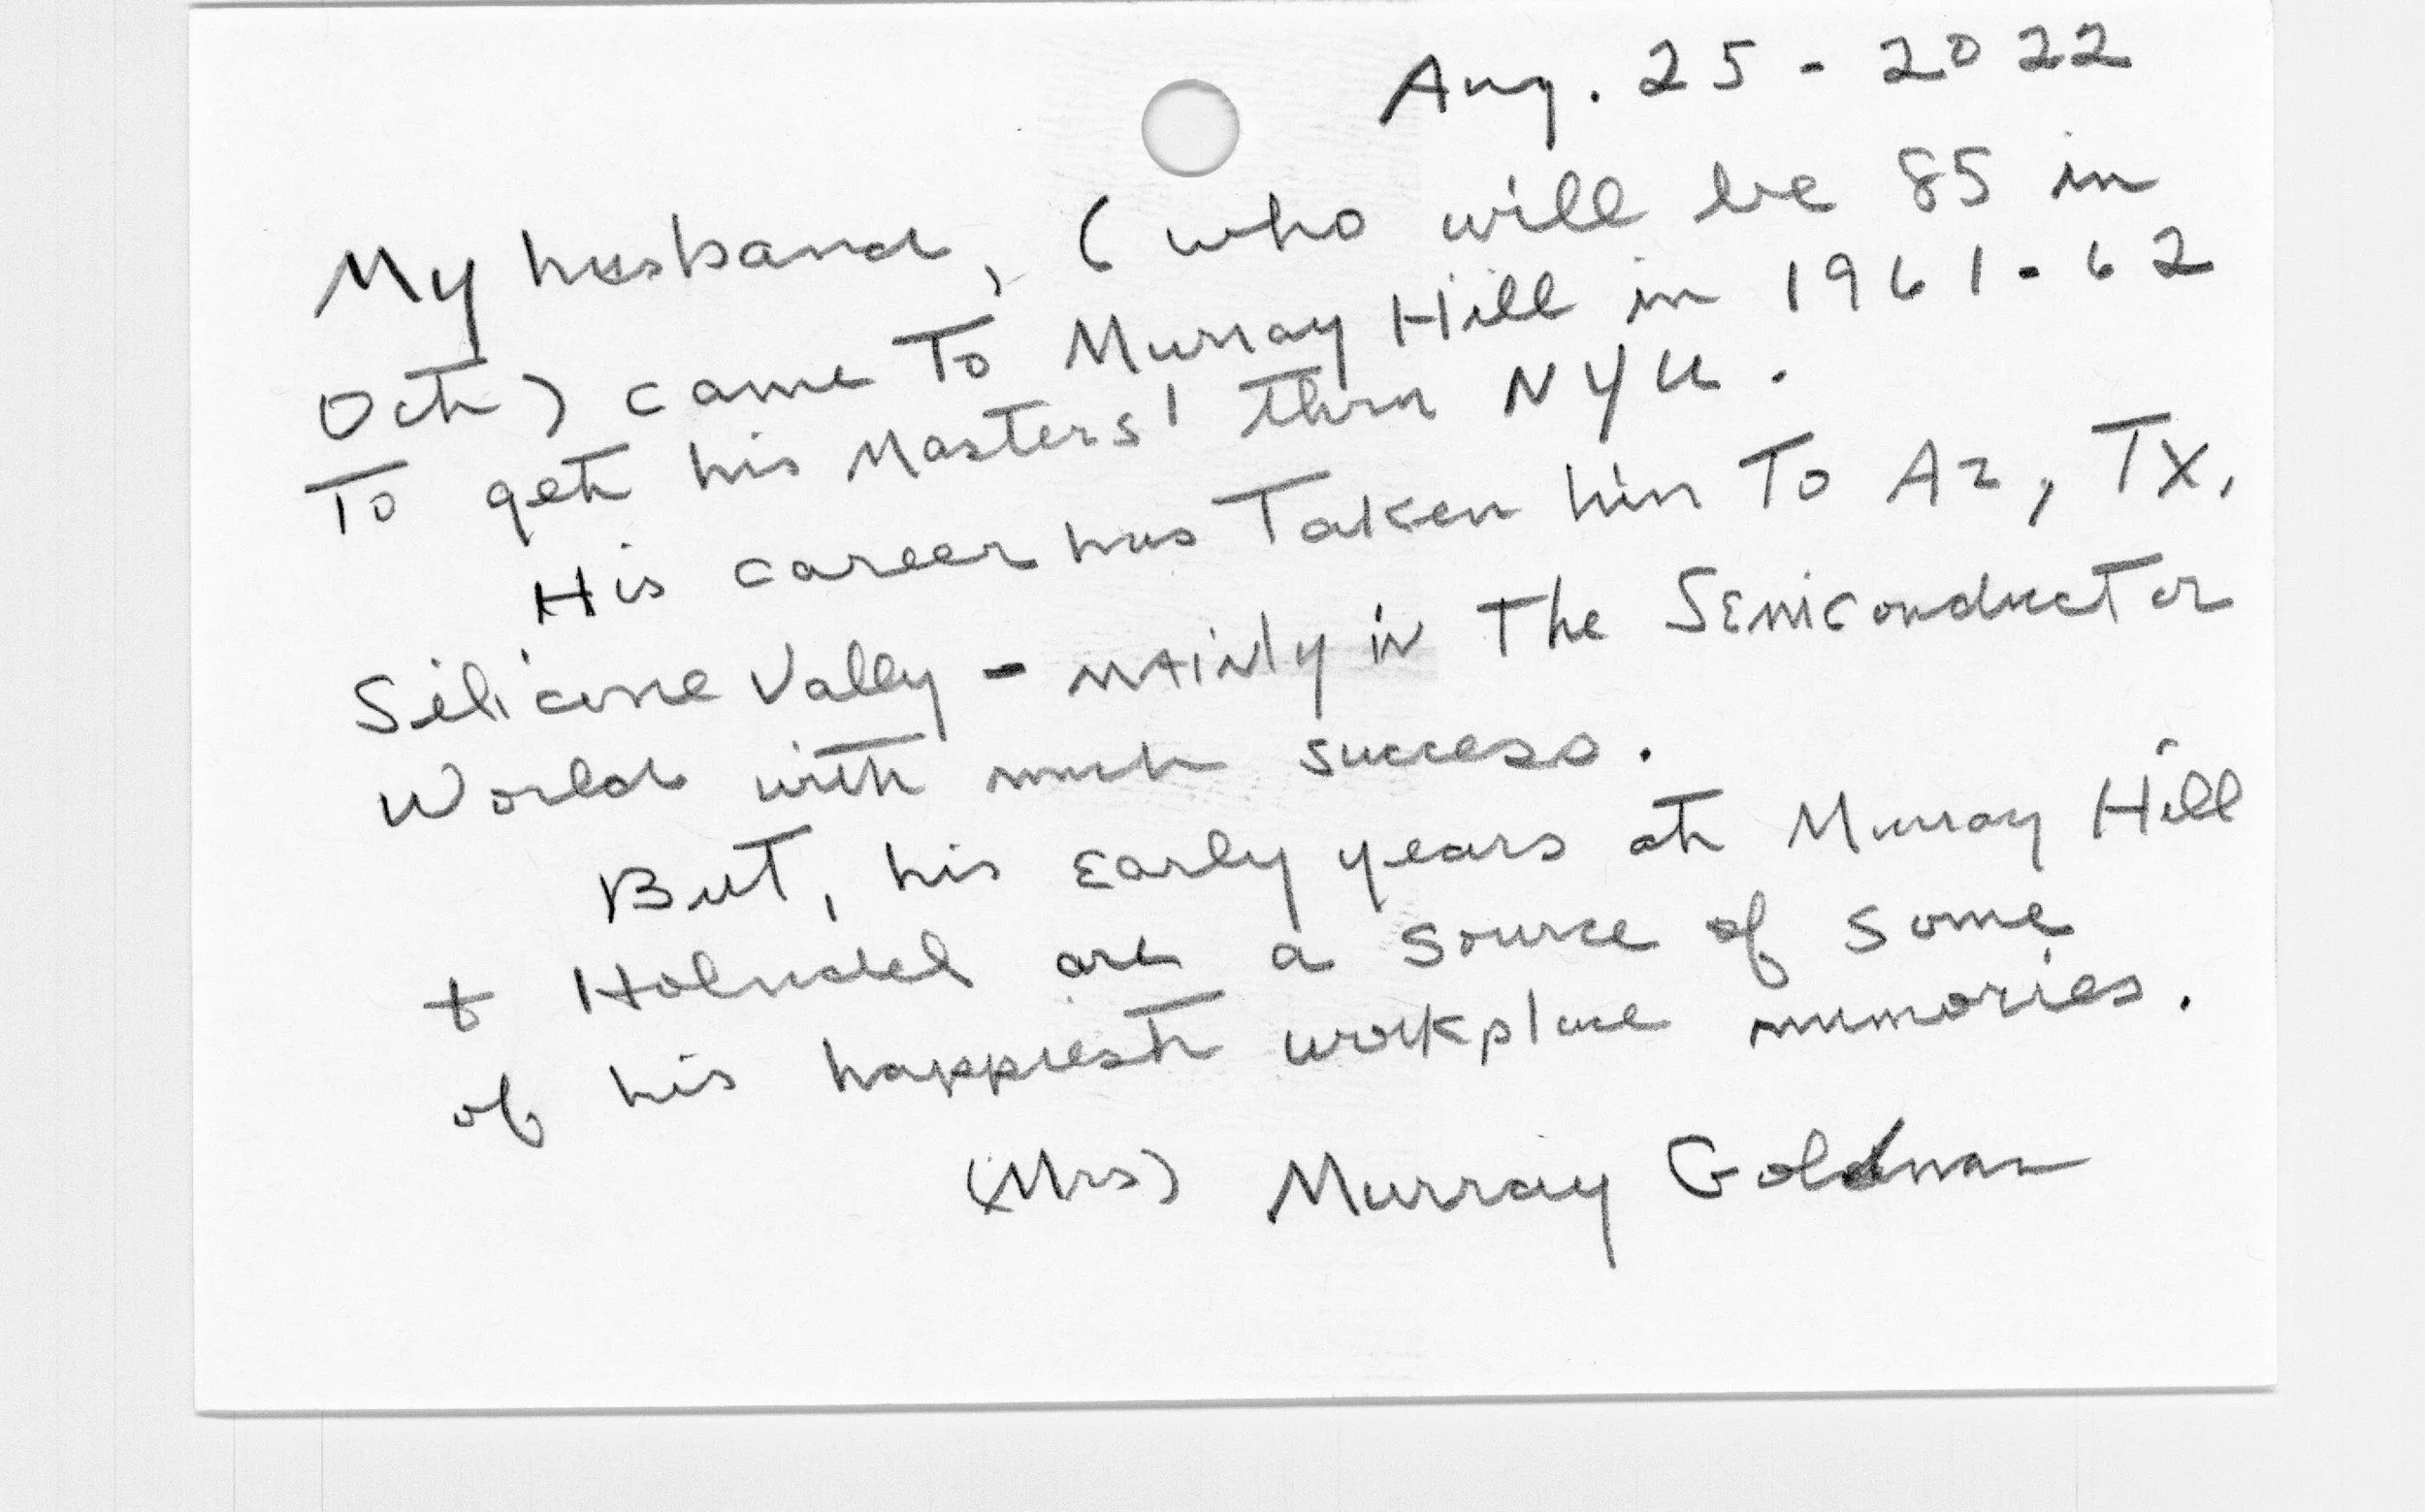 Aug. 25 - 2022
My husband, (who will be 85 in
Oct) came To Murray Hill in 1961-62
To get his Masters' thru NYU.
His career has Taken him To Az, TX,
Silicone Valley - mainly in The Semiconductor
World with much success.
But, his Early years at Murray Hill
+ Holmdel are a source of some
of his happiest workplace memories.
(Mrs) Murray Goldman